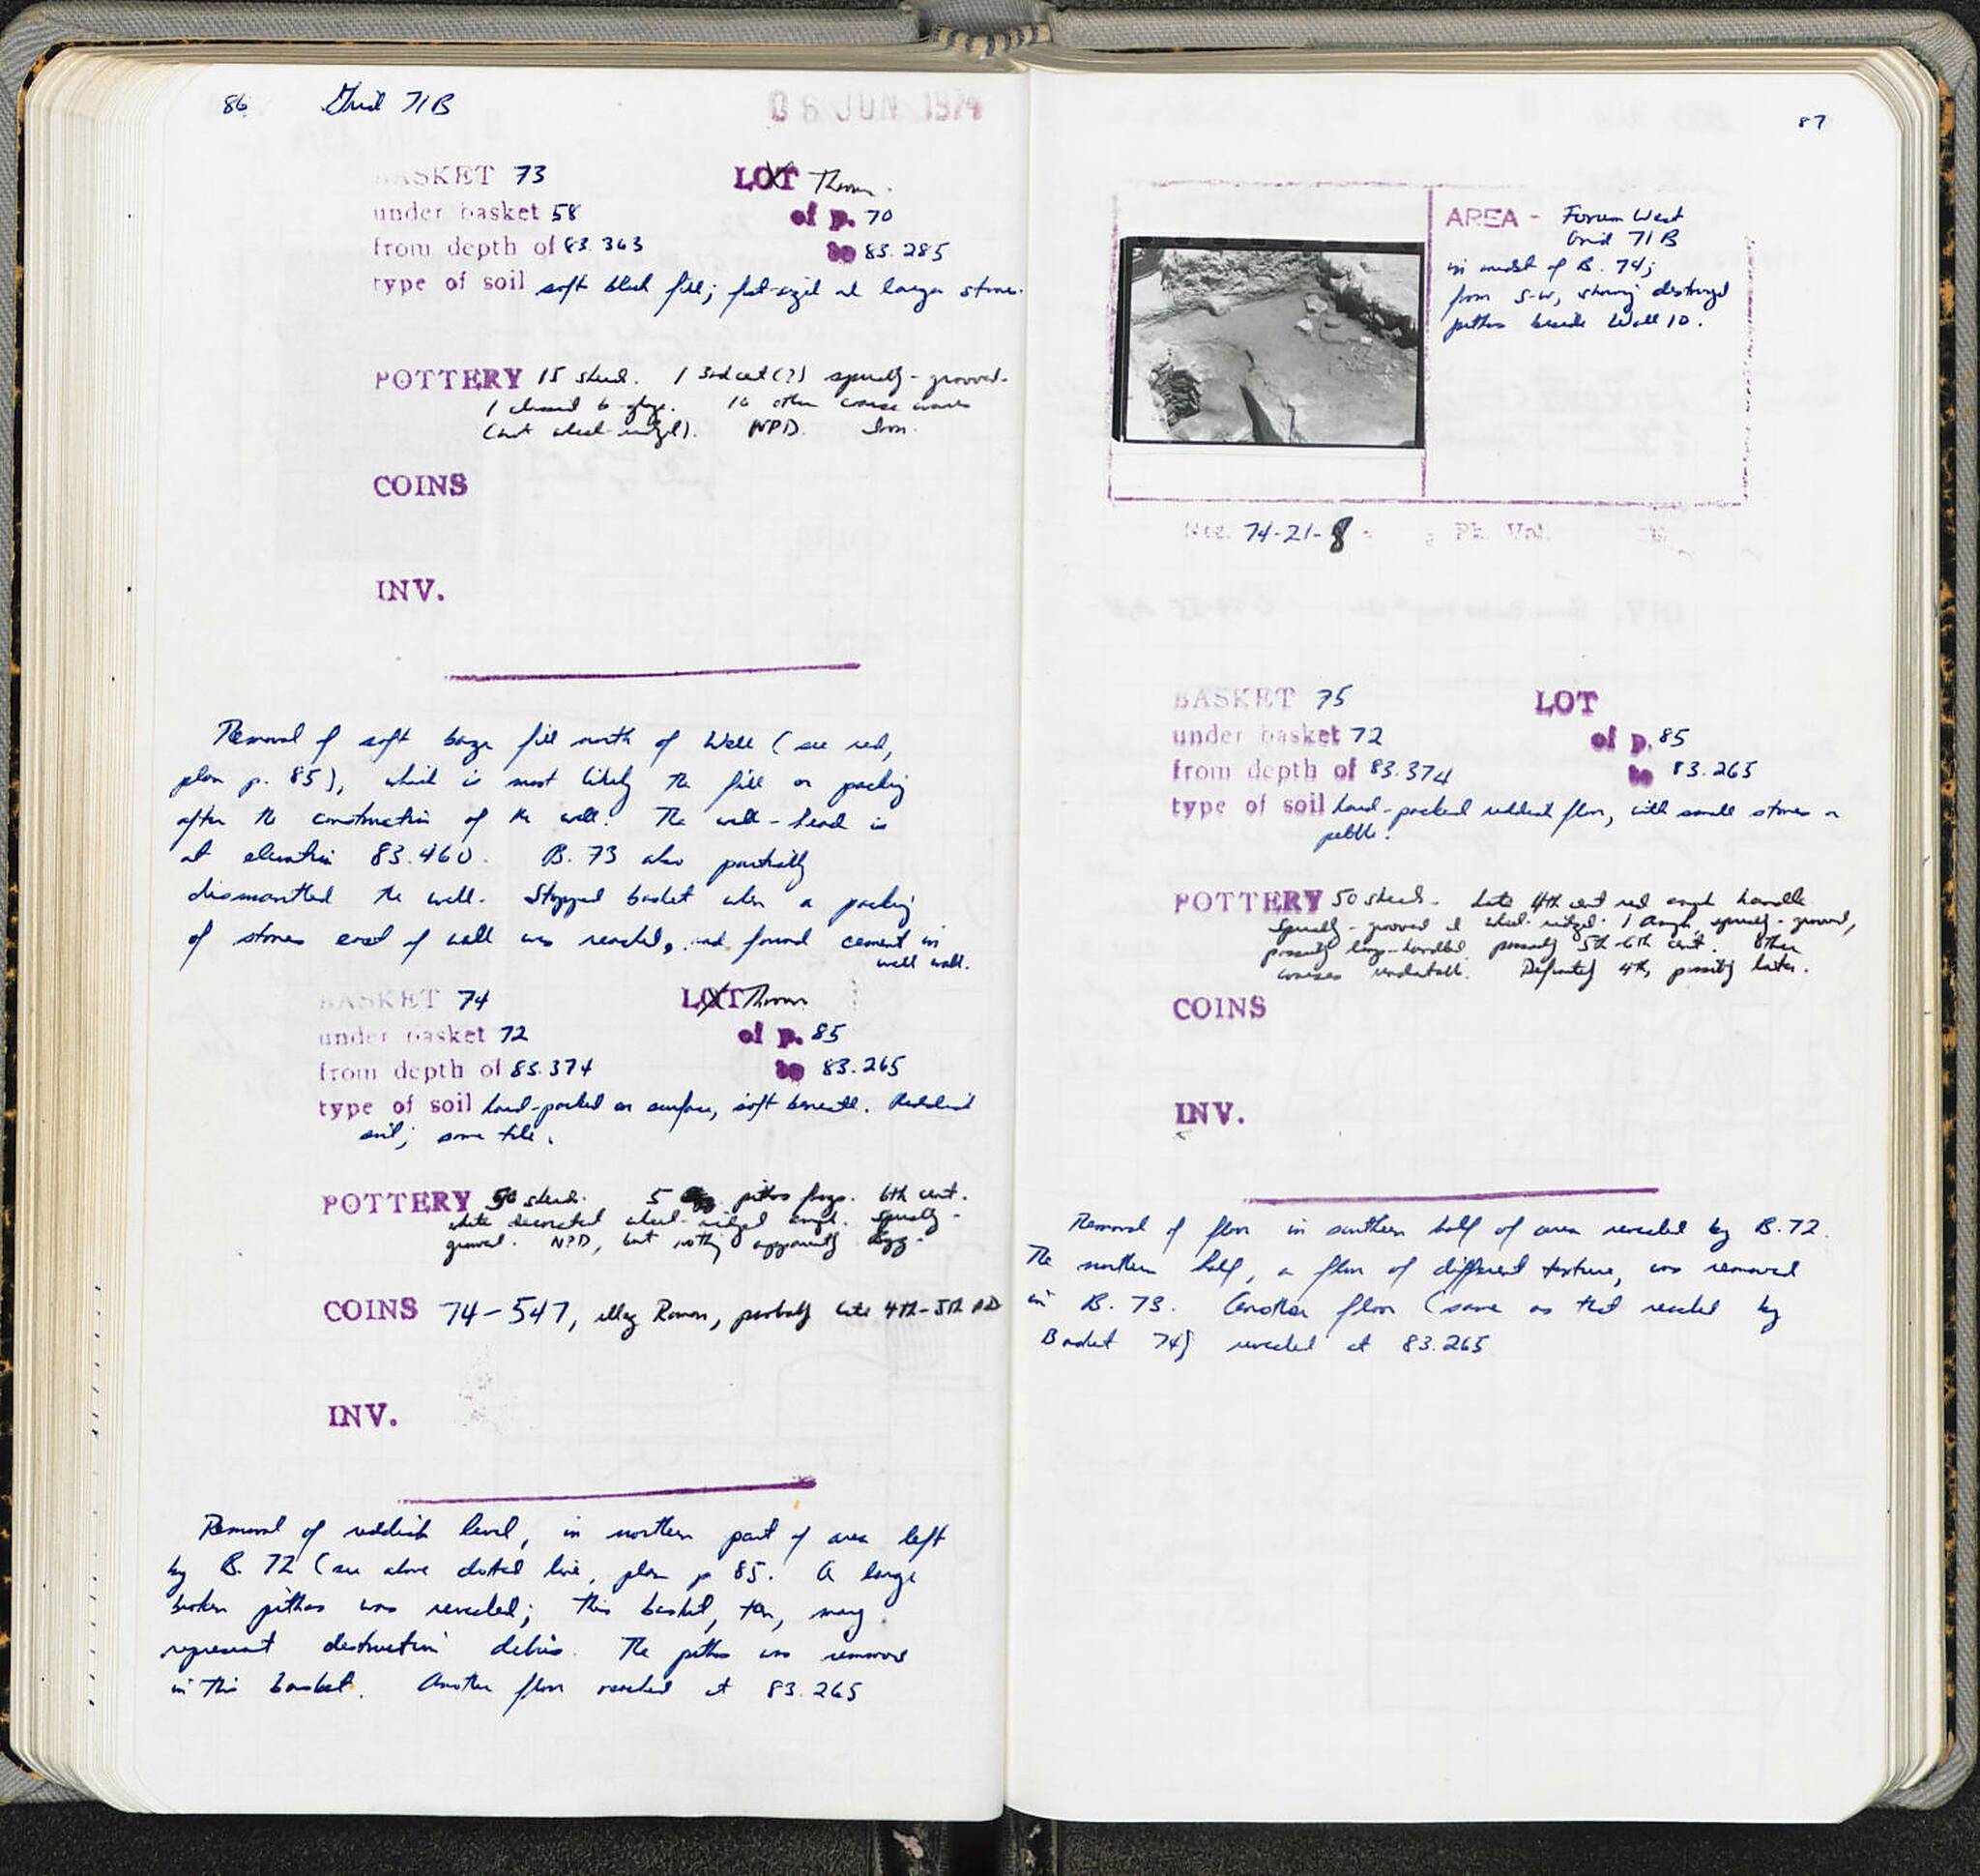 86 Grid 71B 06 JUN 1974
BASKET 73 LOT Thrown.
under basket 58 of p. 70
from depth of 83.363 to 83.285
type of soil soft black fill; fist-sized and larger stones.
POTTERY 15 sherds. 1 3rd cent (?) spirally-grooved.
1 classical b. glaze. 10 other coarse wares
(not wheel-ridged). NPD. Thrown.
COINS
INV.
Removal of soft fill north of Well (see red,
plan p. 85), which is most likely the fill or packing
after the construction of the well. The well-head is
at elevation 83.460. B. 73 also partially
dismantled the well. Stopped basket when a packing
of stones east of wall was reached, and found cement in
well wall.
BASKET 74 LOT Thrown
under basket 72 of p. 85
from depth of 83.374 to 83.265
type of soil hard-packed on surface, soft beneath. Reddish
soil; some tile.
POTTERY 50 sherds. 5 pithos frags. 6th cent.
white decorated wheel-ridged amph. Spirally-
grooved. NPD, but nothing apparently
COINS 74-547, illeg Roman, probably late 4th-5th AD
INV.
Removal of reddish level, in northern part of area left
by B. 72 (see above dotted line, plan p 85. A large
broken pithos was revealed; this basket, then, may
represent destruction debris. The pithos was removed
in this basket. Another floor reached at 83.265
87
AREA - Forum West
Grid 71B
in midst of B. 74;
from S-W, showing destroyed
pithos beside Wall 10.
Neg. 74-21-8 ; Ph. Vol.
BASKET 75 LOT
under basket 72 of p. 85
from depth of 83.374 to 83.265
type of soil hard-packed reddish floor, with small stones or
pebbles.
POTTERY 50 sherds. Late 4th cent red amph handle
Spirally-grooved and wheel-ridged. 1 amph, spirally-grooved,
possibly large-handled, possibly 5th-6th cent. Other
coarses undatable. Definitely 4th, possibly later.
COINS
INV.
Removal of floor in southern half of area revealed by B. 72.
The northern half, a floor of different texture, was removed
in B. 73. Another floor (same as that reached by
Basket 74) revealed at 83.265